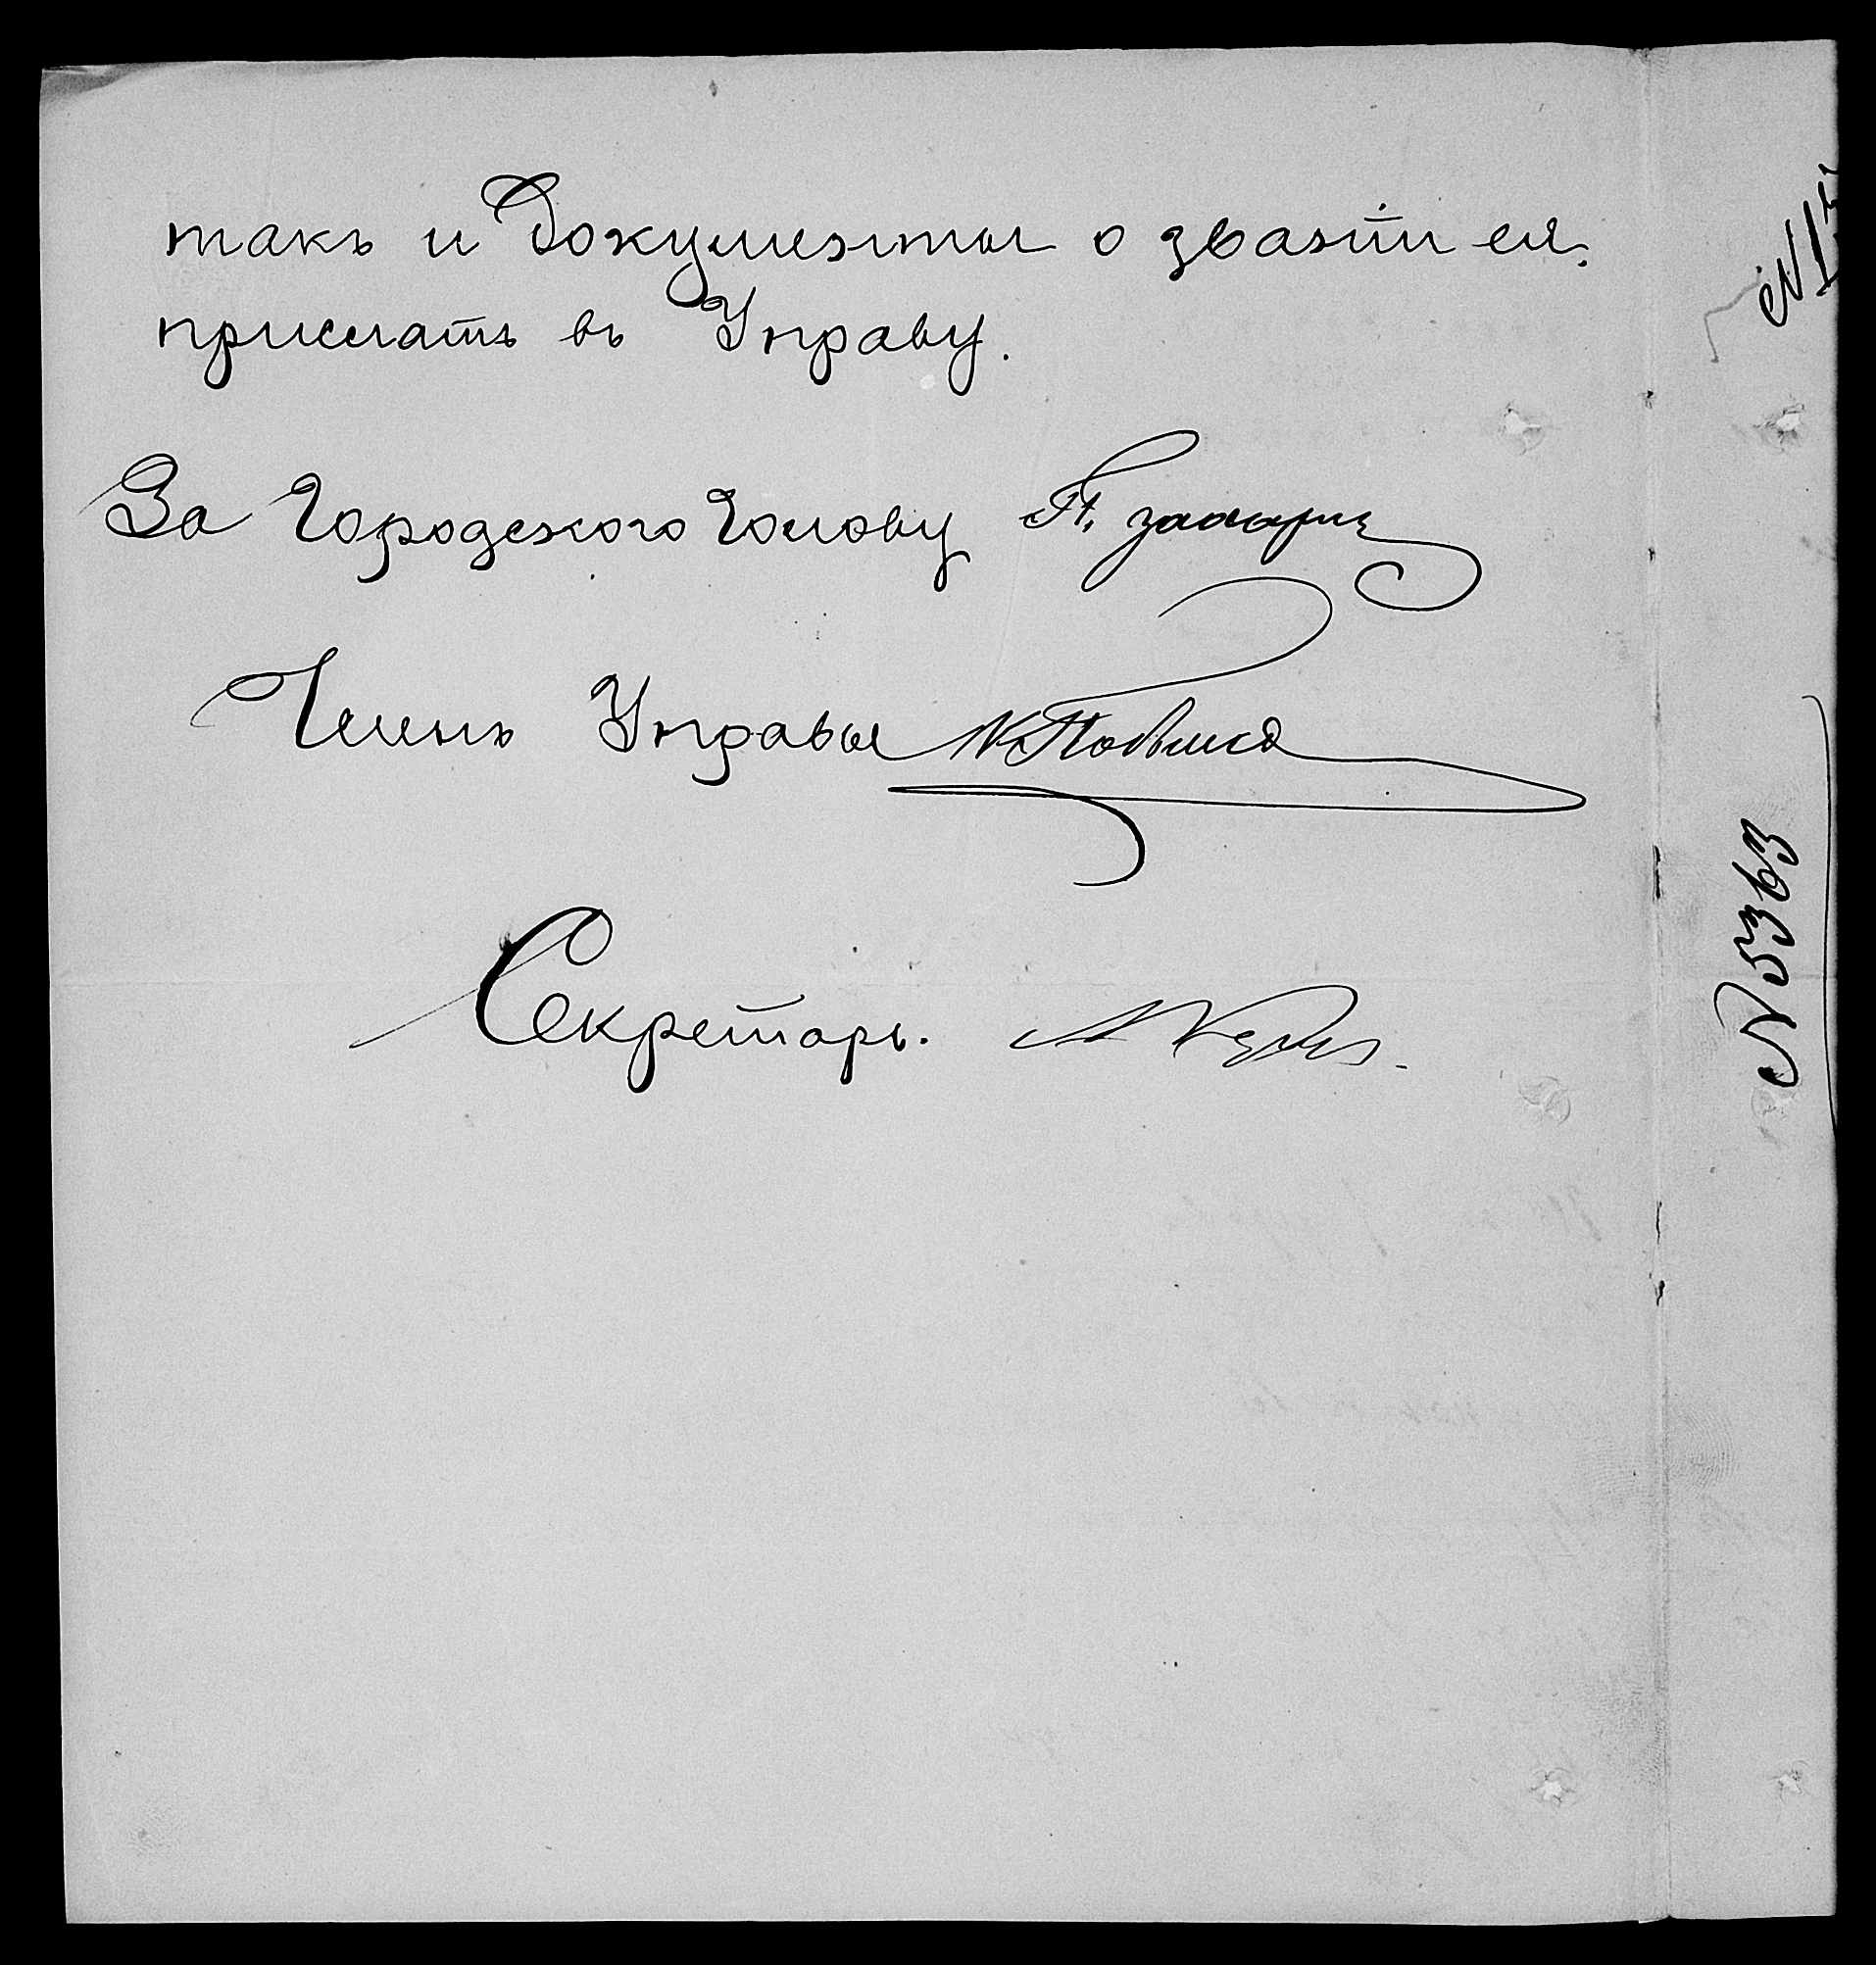 такъ и документы о званіи ея
прислать въ Управу.
За Городского Голову
Членъ Управы
Секретарь.
№ 5363